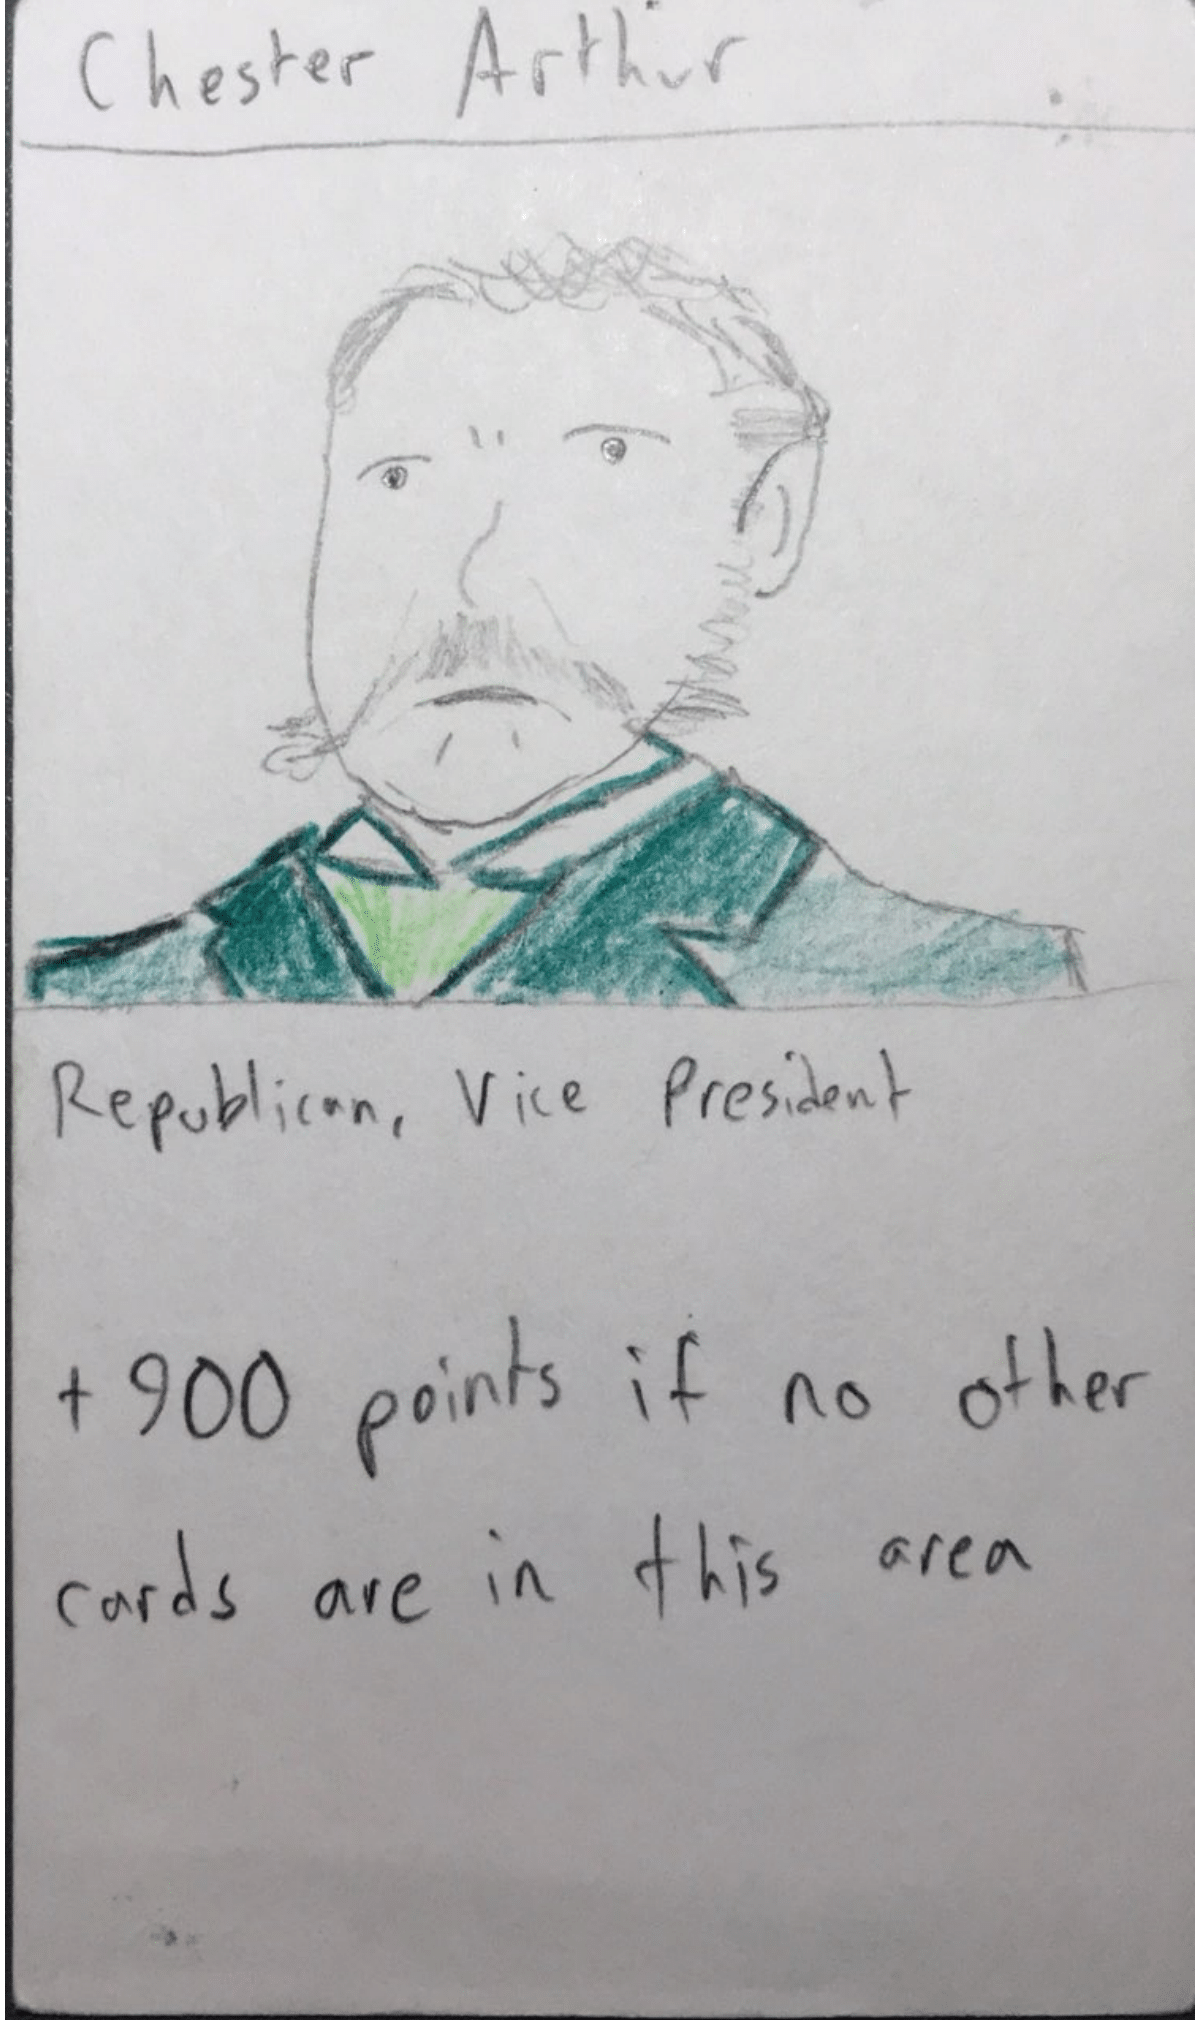 Chester Arthur
Republican, Vice President
+900 points if no other
cards are in this area